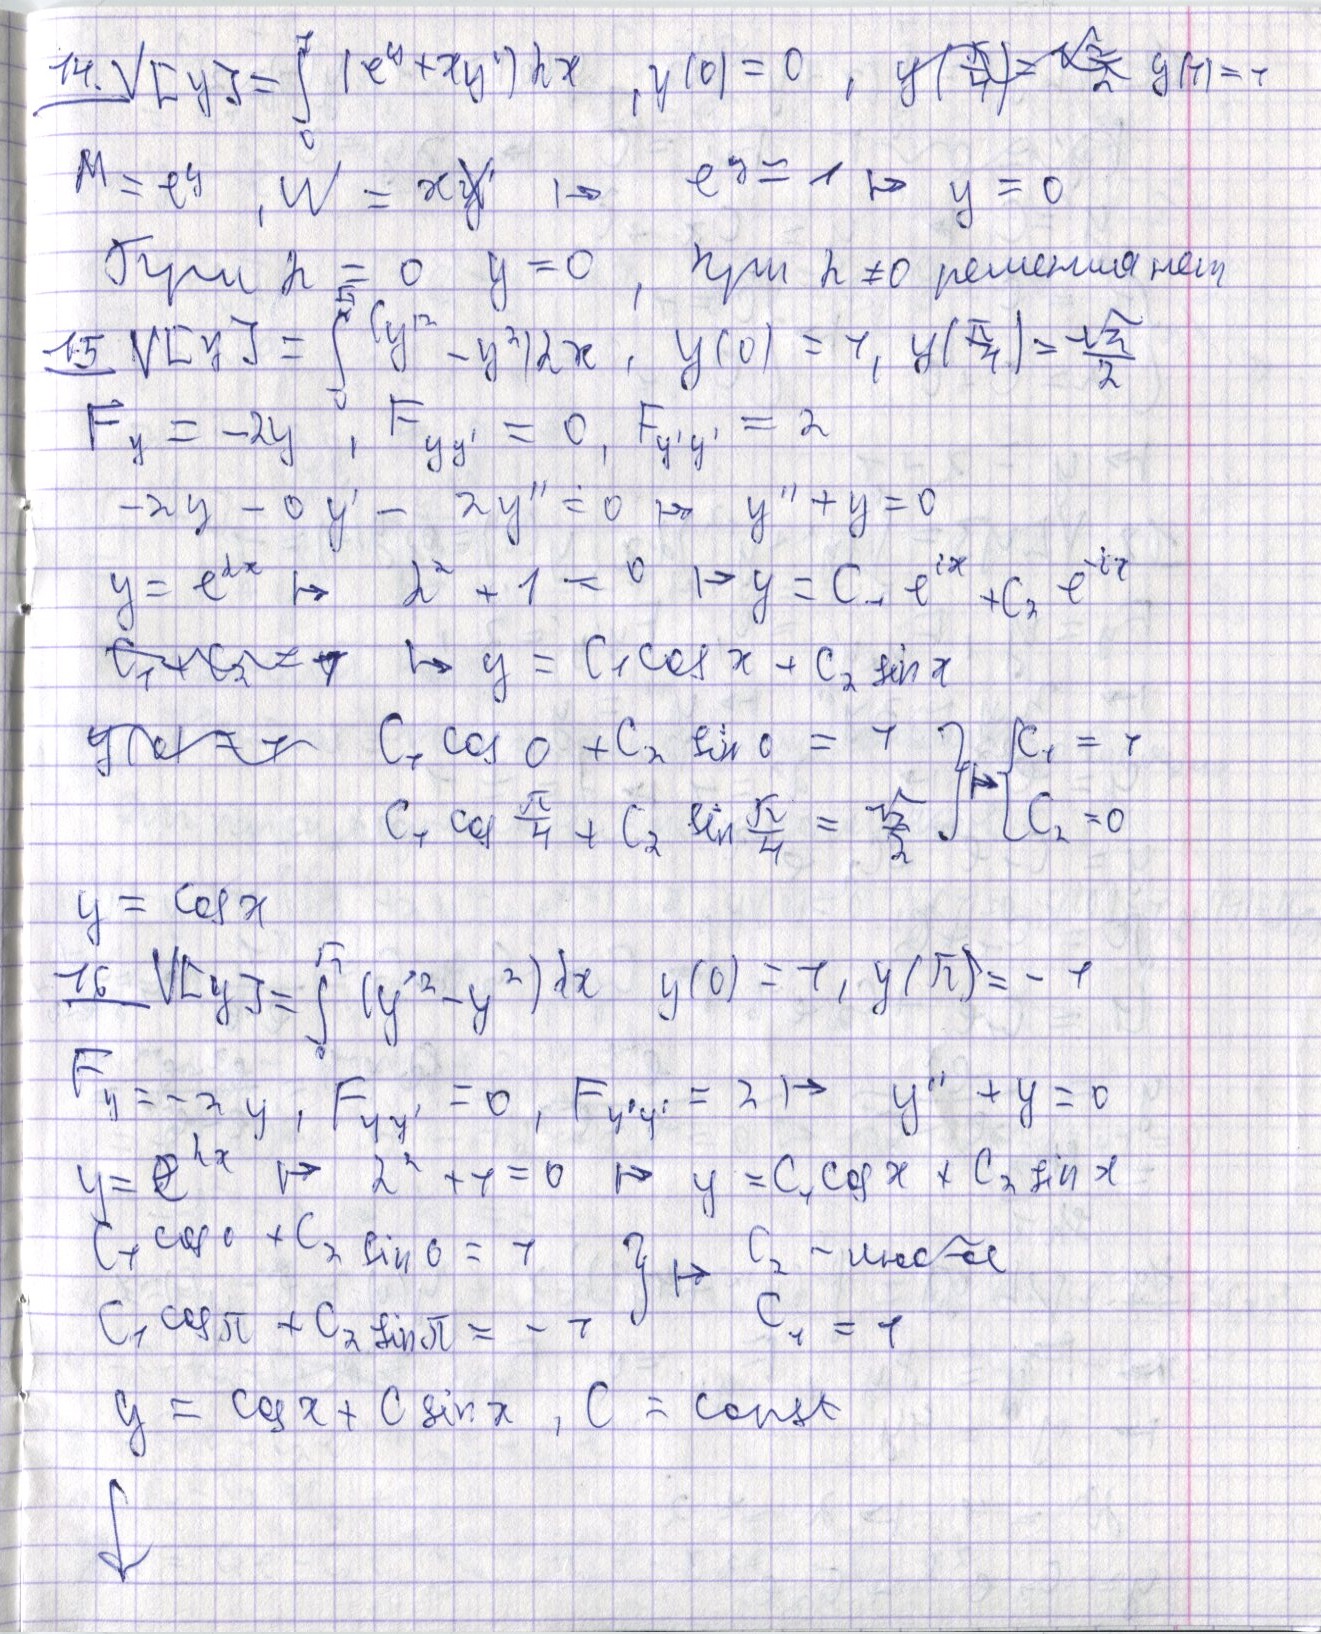 14. V[y] = ∫₀¹ (e^y + xy') dx , y(0) = 0 , y(π/4) = √2/2 y(1) = 1
M = e^y , N = xy' ↦ e^y = 1 ↦ y = 0
При λ = 0 y = 0 , при λ ≠ 0 решения нет
15 V[y] = ∫ (y'² - y²) dx , y(0) = 1, y(π/4) = √2/2
F_y = -2y , F_yy' = 0, F_y'y' = 2
-2y - 0y' - 2y'' = 0 ↦ y'' + y = 0
y = e^λx ↦ λ² + 1 = 0 ↦ y = C₁ e^ix + C₂ e^-ix
C₁ + C₂ = 1 ↦ y = C₁ cos x + C₂ sin x
y(0) = 1 C₁ cos 0 + C₂ sin 0 = 1 } ↦ { C₁ = 1
C₁ cos π/4 + C₂ sin π/4 = √2/2 C₂ = 0
y = cos x
16 V[y] = ∫₀^π (y'² - y²) dx y(0) = 1, y(π) = -1
F_y = -2y , F_yy' = 0 , F_y'y' = 2 ↦ y'' + y = 0
y = e^λx ↦ λ² + 1 = 0 ↦ y = C₁ cos x + C₂ sin x
C₁ cos 0 + C₂ sin 0 = 1 } ↦ C₂ -
C₁ cos π + C₂ sin π = -1 C₁ = 1
y = cos x + C sin x , C = const